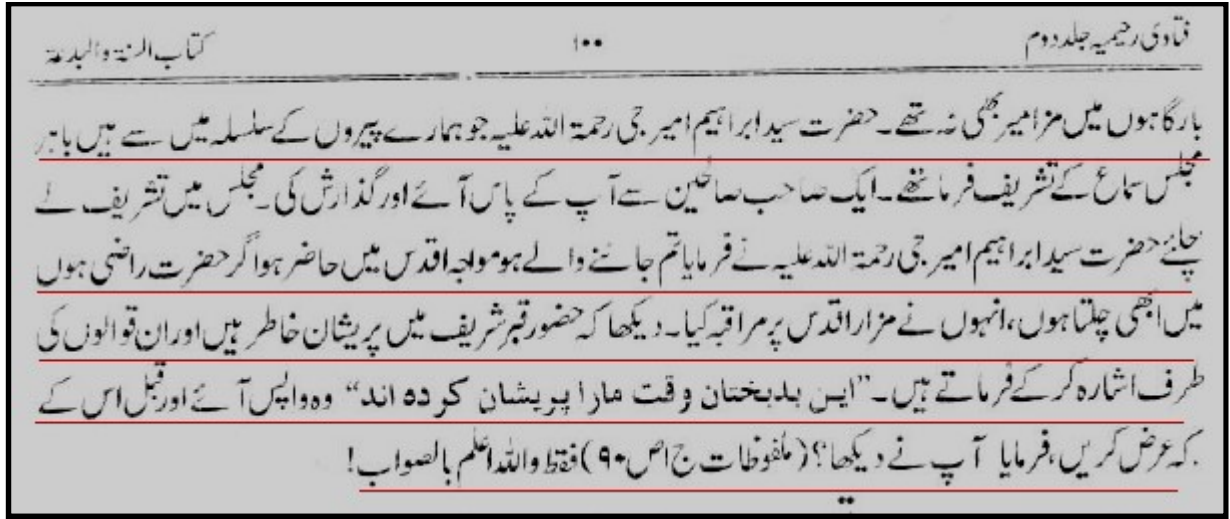 فتاوی رحیمیہ جلد دوم ۱۰۰ کتاب السنۃ والبدعۃ
بارگاہوں میں مزامیر بھی نہ تھے۔ حضرت سید ابراہیم امیر جی رحمۃ اللہ علیہ جو ہمارے پیروں کے سلسلہ میں سے ہیں باہر
مجلس سماع کے تشریف فرما تھے۔ ایک صاحب صالحین سے آپ کے پاس آئے اور گذارش کی۔ مجلس میں تشریف لے
چلئے حضرت سید ابراہیم امیر جی رحمۃ اللہ علیہ نے فرمایا تم جاننے والے ہو مواجہ اقدس میں حاضر ہو اگر حضرت راضی ہوں
میں ابھی چلتا ہوں، انہوں نے مزار اقدس پر مراقبہ کیا۔ دیکھا کہ حضور قبر شریف میں پریشان خاطر ہیں اور ان قوالوں کی
طرف اشارہ کر کے فرماتے ہیں۔ ”این بدبختان وقت مارا پریشان کردہ اند“ وہ واپس آئے اور قبل اس کے
کہ عرض کریں، فرمایا آپ نے دیکھا؟ (ملفوظات ج۱ص۹۰) فقط واللہ اعلم بالصواب!